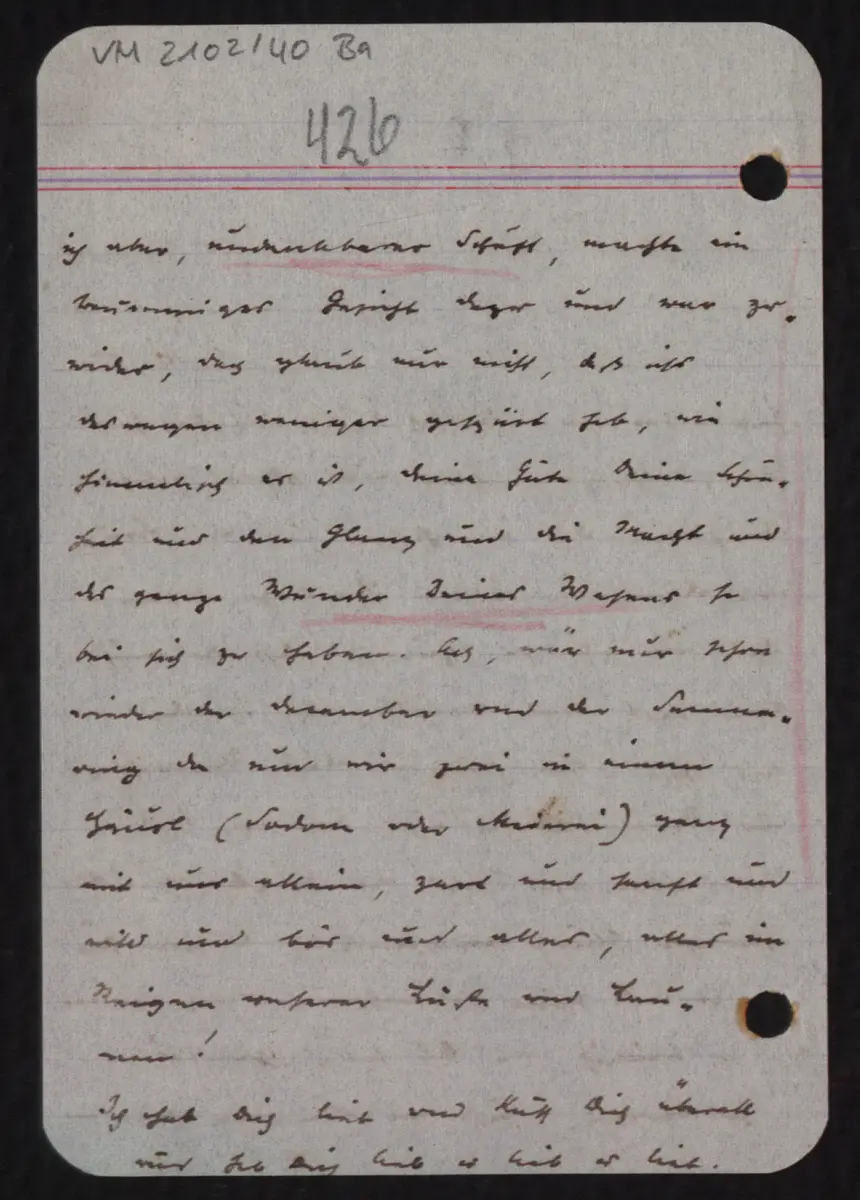 VM 2102/40 Ba
426
ich aber, undankbarer Schuft, machte ein
Gesicht dazu und war zu-
wider, doch glaub nur nicht, daß ichs
deswegen weniger gespürt hab, wie
himmlisch es ist, deine Güte Deine Schön-
heit und den Glanz und die Macht und
das ganze Wunder Deines Wesens so
bei sich zu haben. Ach, wär nur schon
wieder der dezember und der Semme-
ring da und wir zwei in einem
Häusl (Sodom oder Meierei) ganz
mit uns allein, zart und sanft und
wild und bös und alles, alles im
Reigen unserer Lüste und Lau-
nen!
Ich hab Dich lieb und küß Dich überall
und hab Dich lieb o lieb o lieb.